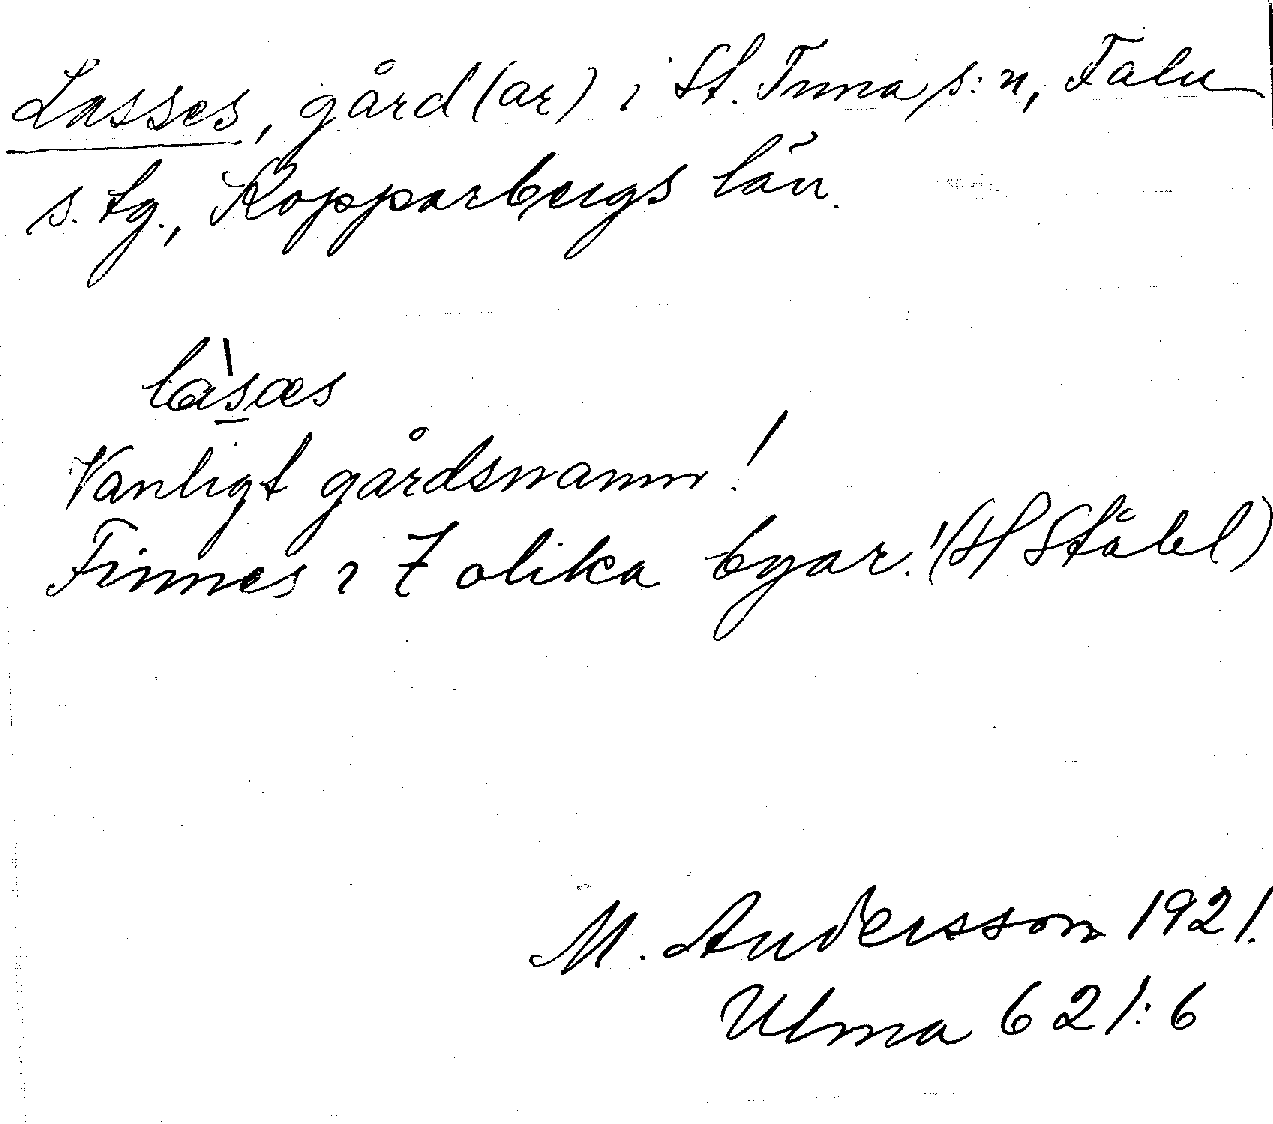 Lasses, gård(ar) i St. Tuna s:n, Falu
s. tg., Kopparbergs län.
làsæs
Vanligt gårdsnamn!
Finnes i 7 olika byar! (H Ståbl)
M. Andersson 1921.
Ulma 621:6